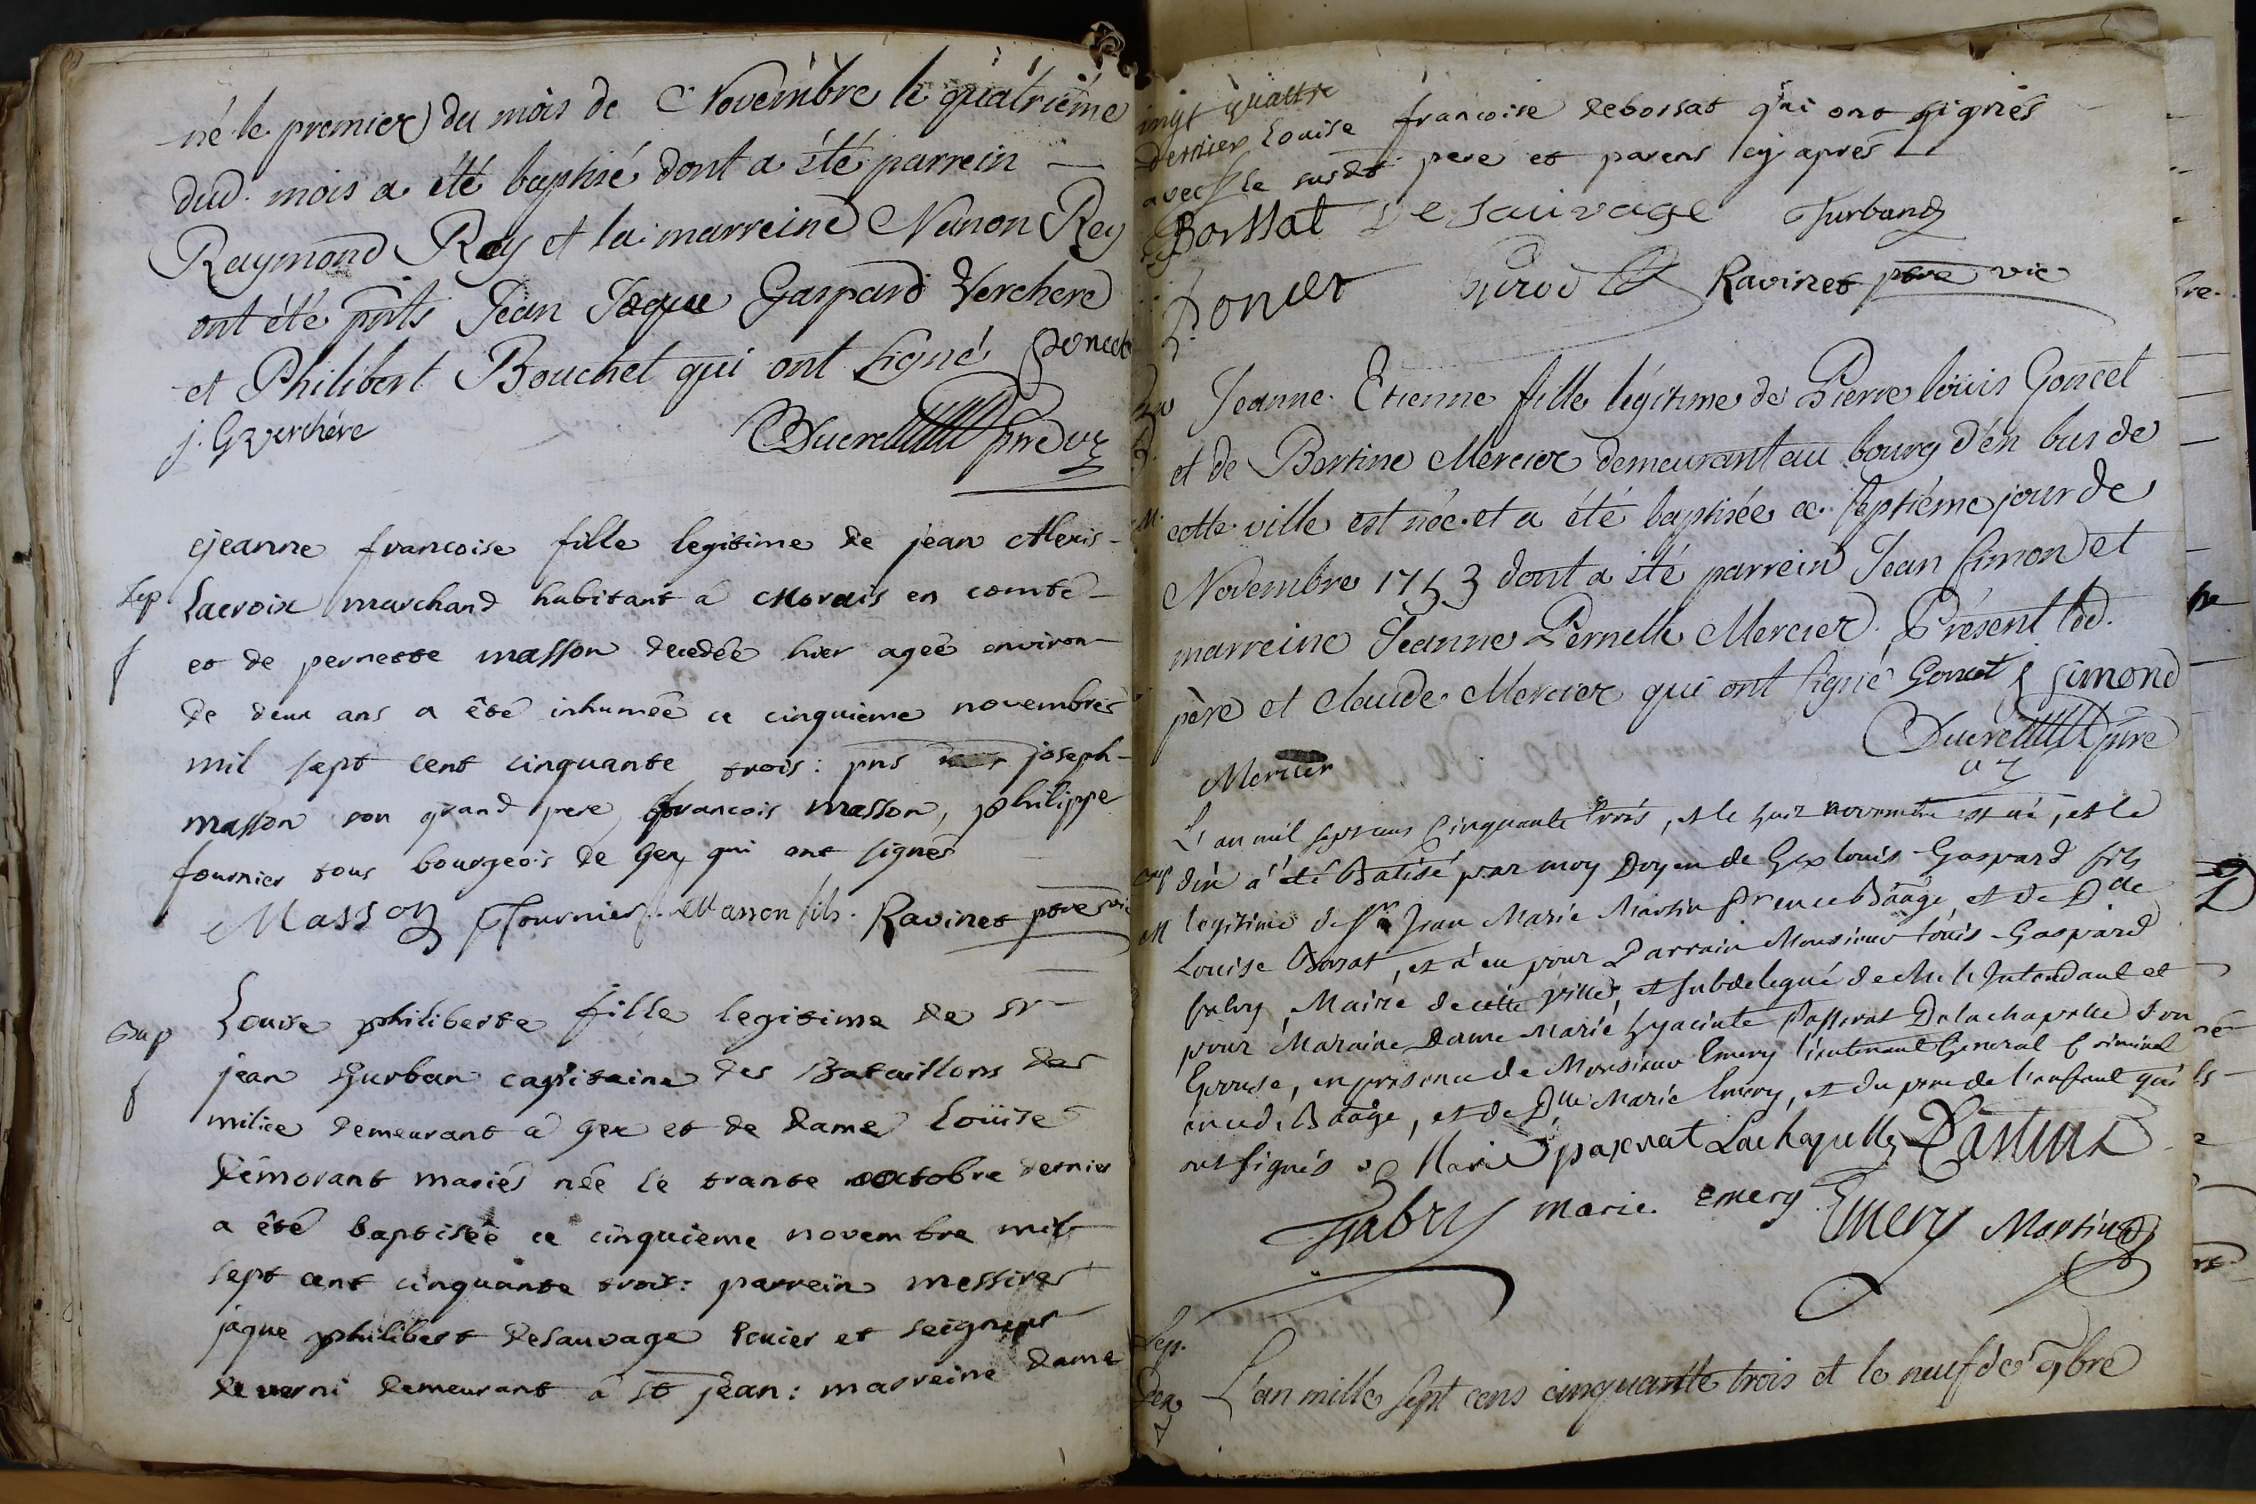 né le premier du mois de Novembre le quatriéme
dud. mois a été baptisé dont a été parrein
Raymond Rey et la marreine Nanon Rey
ont été pnts Jean Jaque Gaspard Verchere
et Philibert Bouchet qui ont signé Poncet
j. G verchére Ducret pre vic
jeanne francoise fille legitime de jean Alexis
Sep Lacroix marchand habitant à Morais en comté
f et de pernette masson decedée hier agée environ
de deux ans a êté inhumée ce cinquieme novembre
mil sept cent cinquante trois: pns joseph
masson son grand pere, francois masson, philippe
fournier tous bourgeois de Gex qui ont signés
Masson Fournier Masson fils. Ravinet ptre vic
Bap Louise philiberte fille legitime de sr
f jean Gurban capitaine des Bataillons des
milice demeurant a Gex et de dame Loüise
démorant mariés née le trante octobre dernier
a êté baptisée ce cinquieme novembre mil
sept cent cinquante trois: parrein messire
jaque philibert desauvage et seigneur
de verni demeurant a st jean: marreine dame
vingt quattre
dernier Louise francoise debossat qui ont signés
avec le susdt pere et parens cy aprés
Borssat De Sauvage Turband
Poncet Girod Ravinet ptre vic
Jeanne Etienne fille légitime de Pierre loüis Goncet
et de Bertine Mercier demeurant au bourg d'en bas de
cette ville est née et a été baptisée ce septiéme jour de
Novembre 1753 dont a été parrein Jean simon et
marreine Jeanne Pernette Mercier. Présent led.
père et claude Mercier qui ont signé Goncet J simond
Ducret ptre
Mercier vic
L'an mil sept cens Cinquante trois, et le huit novembre est né, et le
dix a été Batisé par moy Doyen de Gex louis Gaspard fils
M legitime de sr Jean Marie Martin et de Dde
Louise Borsat, et a eu pour Parrain Monsieur loüis Gaspard
fabry, Maire de cette ville, et subdelegué de Mr l'Intendant et
pour Maraine Dame Marie hyacinte Passerat Delachapelle son
Epouse, en presence de Monsieur Emery lieutenant General Criminel
aud. Baage, et de Dlle Marie Emery, et du pere de l'enfant qui
ont signés Marie paserat Lachapelle Castin
Fabry marie Emery Emery Martin
Sep.
L'an mille sept cens cinquante trois et le neuf de 9bre